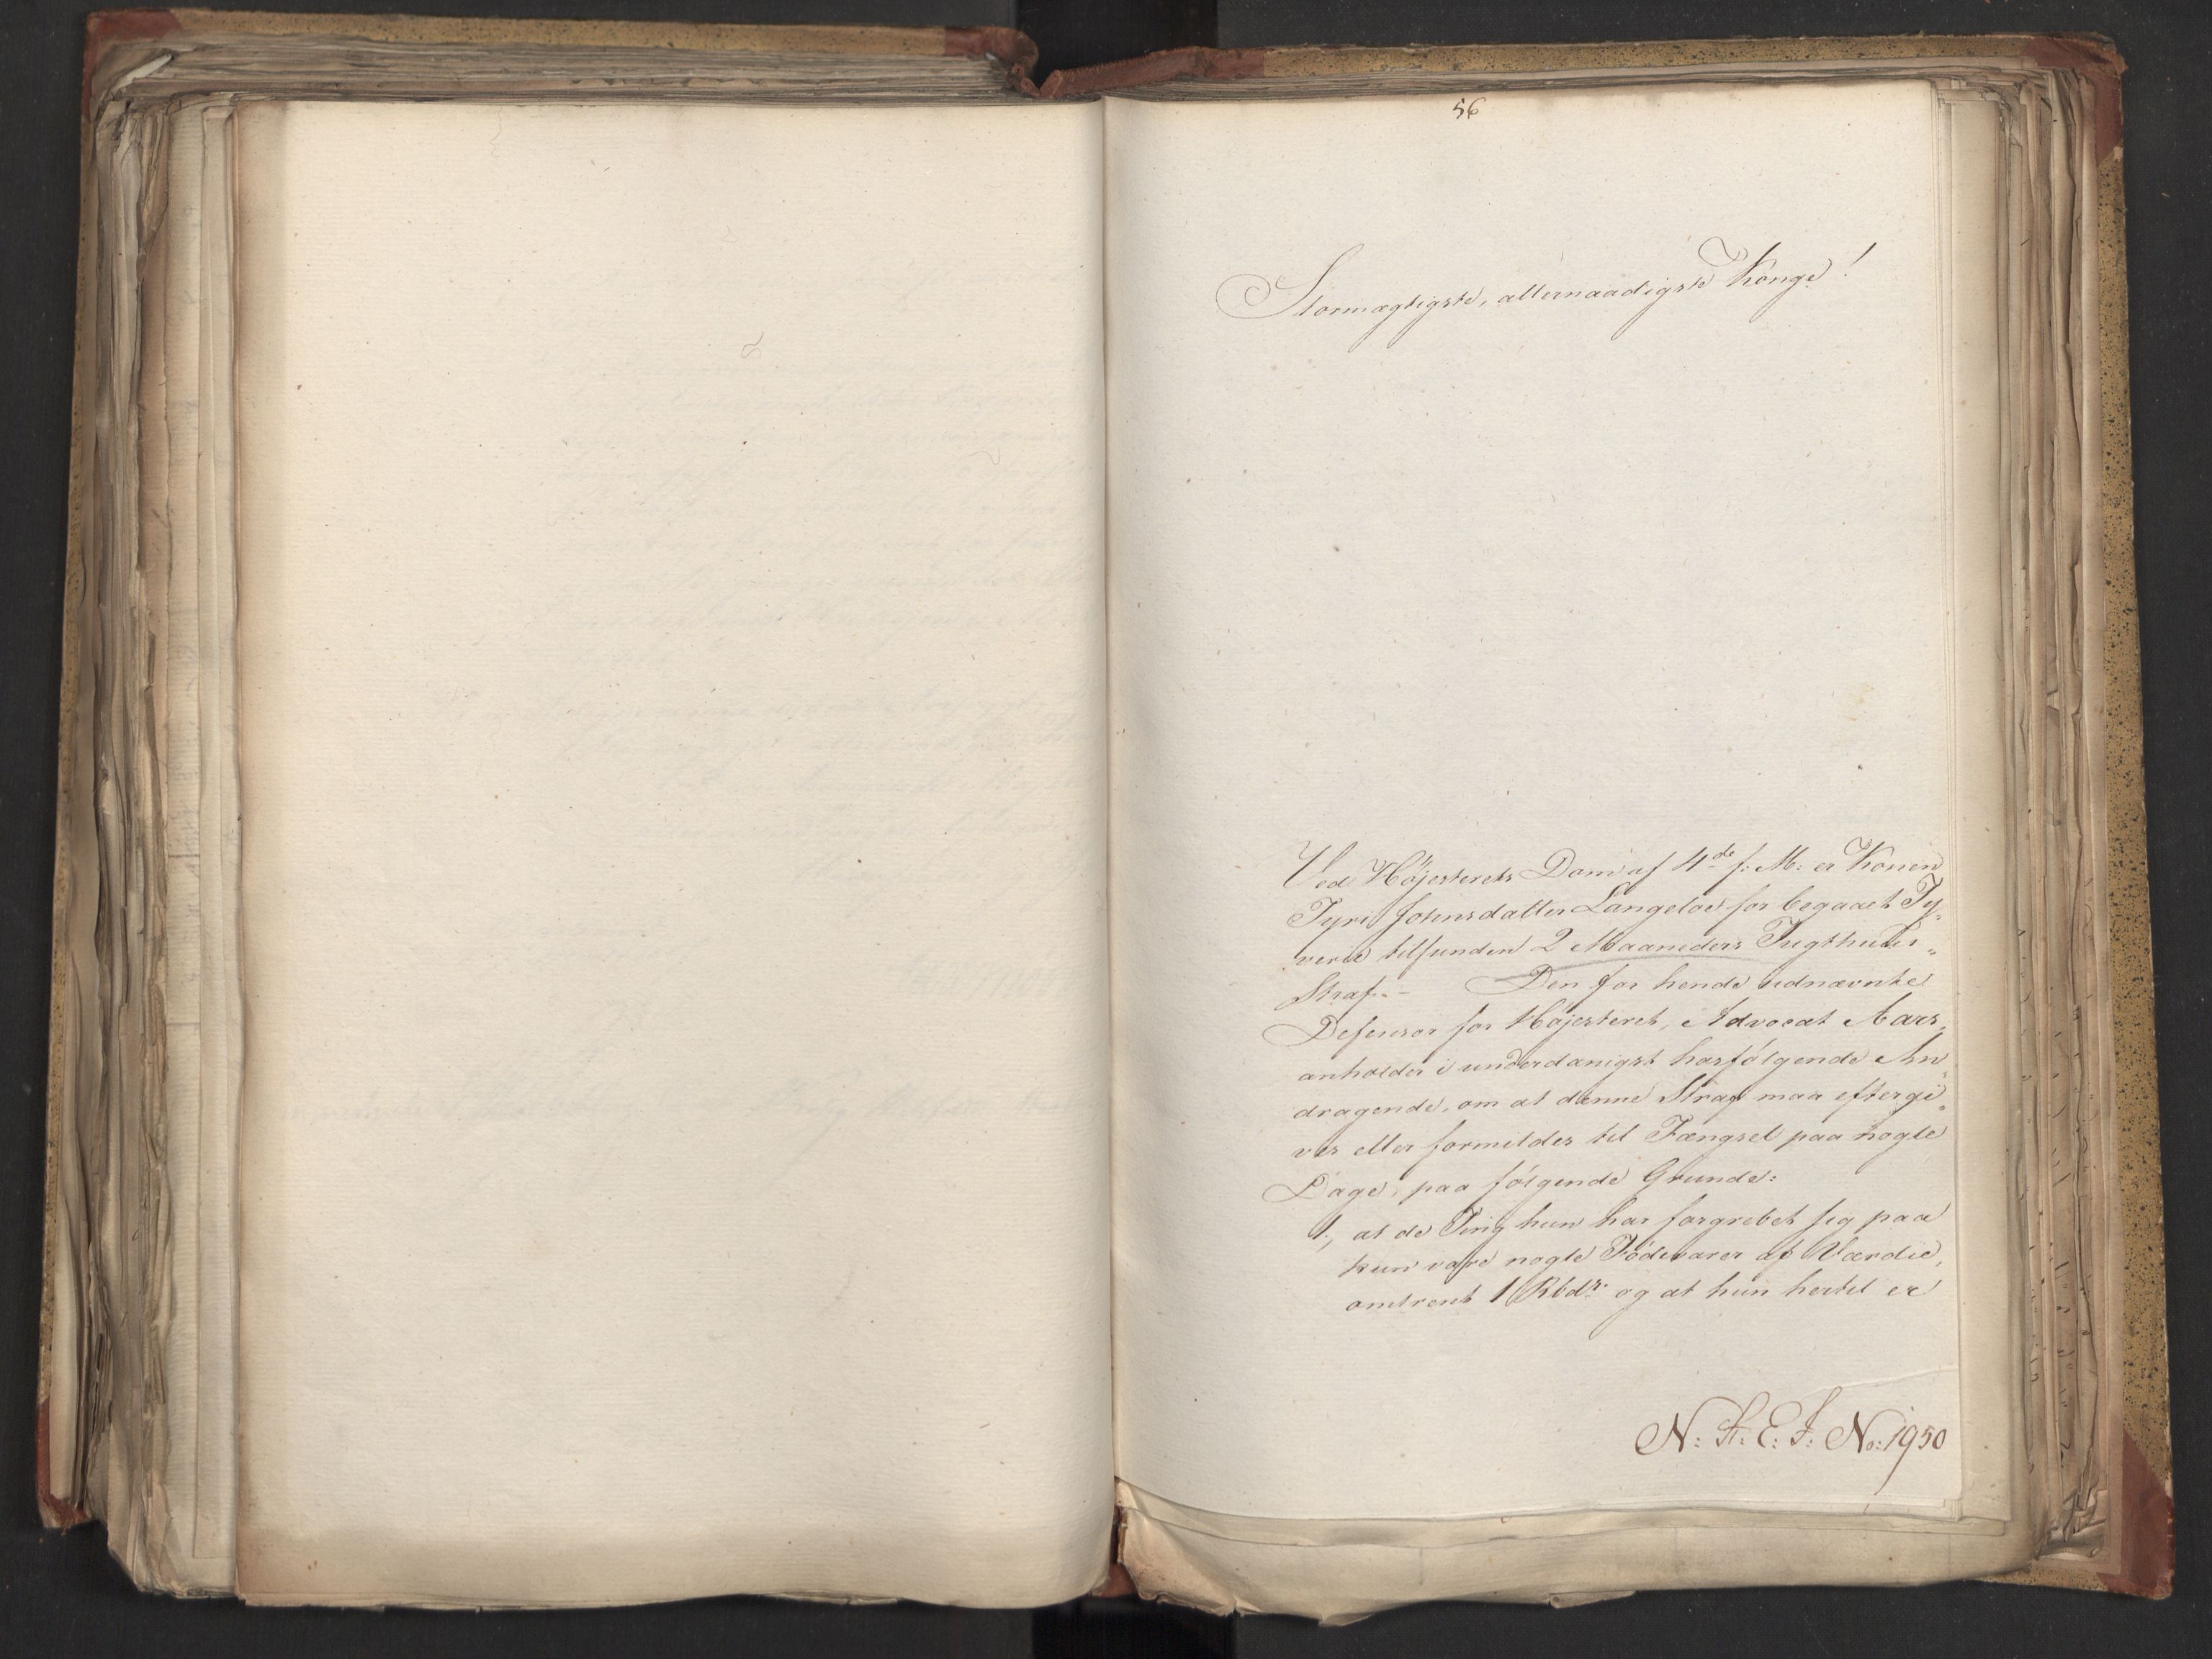 56
Stormægtigste, allernaadigste Konge!
Ved Høiesterets Dom af 4de f: M: er Konen
Tyri Johnsdatter Langeloe for begaaet Ty„
verie tilfunden 2 Maaneders Tugthuus„
Straf. — Den for hende udnævnte
Defensor for Høiesteret, Advocat Aars„
anholder i underdanigst hosfølgende An„
dragende, om at denne Straf maa eftergi„
ves eller formildes til Fængsel paa nogle
Dage, paa følgende Grunde:
1, at de Ting hun har forgrebet sig paa
kun vare nogle Fødevarer af Værdie,
omtrent 1 Rbdr. og at hun hertil er
N: A: E: J: No: 1950